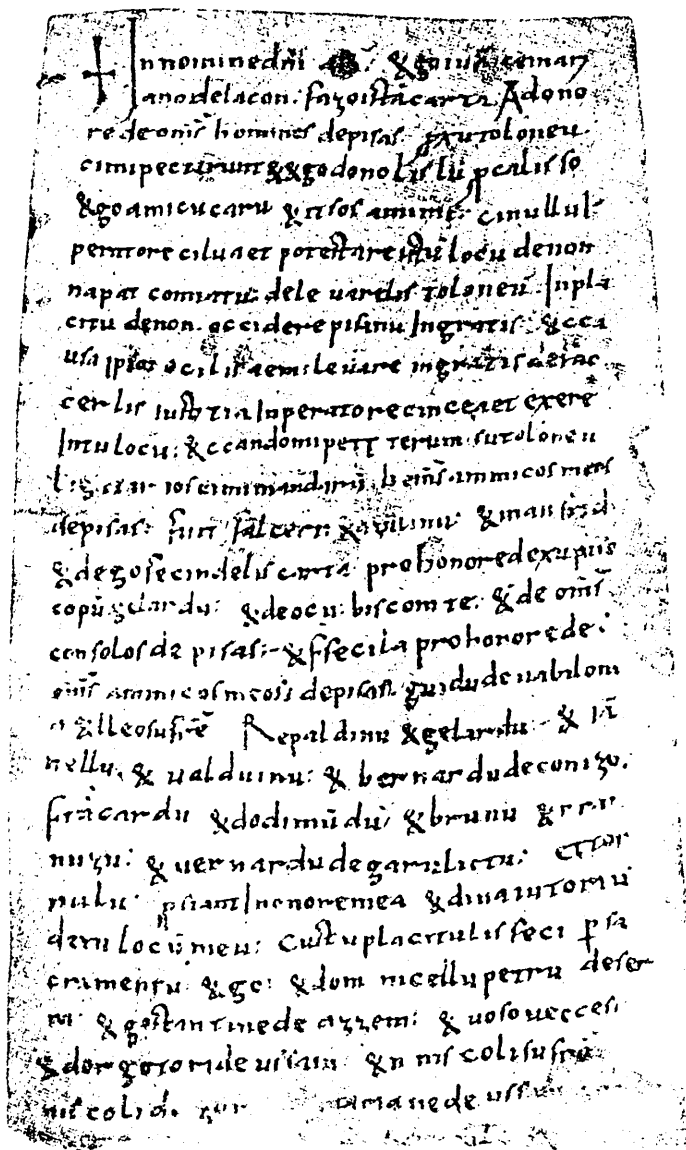 In nomine dñi am̄. &go iudice mari
ano delacon. fazo istā carta Ad ono
re de om̄s homines de pisas p xu toloneu
ci mi pecterunt & ego donolislu p ca lis so
&go amicu caru & itsos a mimi: ci nullu in
peratore ci lu aet potestare istū locu de non
napat comiatu de leuarelis toloneū Inpla
citu de non occidere pisanu Ingratis: & cca
usa ipsoro ci lis aem leuare ingratis de fac
cerlis iustitia Inperatore ci nce aet exere
Intu locu: & ccando mi petterum su toloneu
ligatarios ci mi mandarū homīs ammicos meos
de pisas: fuit falceri & azulinu & manfridi
& dego fecindelis carta pro honore de xu pis
copū gelardu: & de ocu biscomte: & de om̄s
consolos de pisas: & ffecila pro honore de
om̄s ammicos meos de pisas guidu de uabiloni
a & lleo su frē Repaldinu & gelardu & iā
nellu & ualduinu: & bernardu de conizo.
frācardu & dodimūdu & brunu & rra
nuzu: & uernardu de garulictu: ettor
nulu p siant In onore mea & din aiutoriu
dexu locū meu: Custu placitu lis feci p sa
cramentu &go: & domnicellu petru de ser
ra & gostantine de azzem: & uoso ueccesu
& dorgotori de ussam & nniscoli su frē
niscoli de zor mariane de ussam